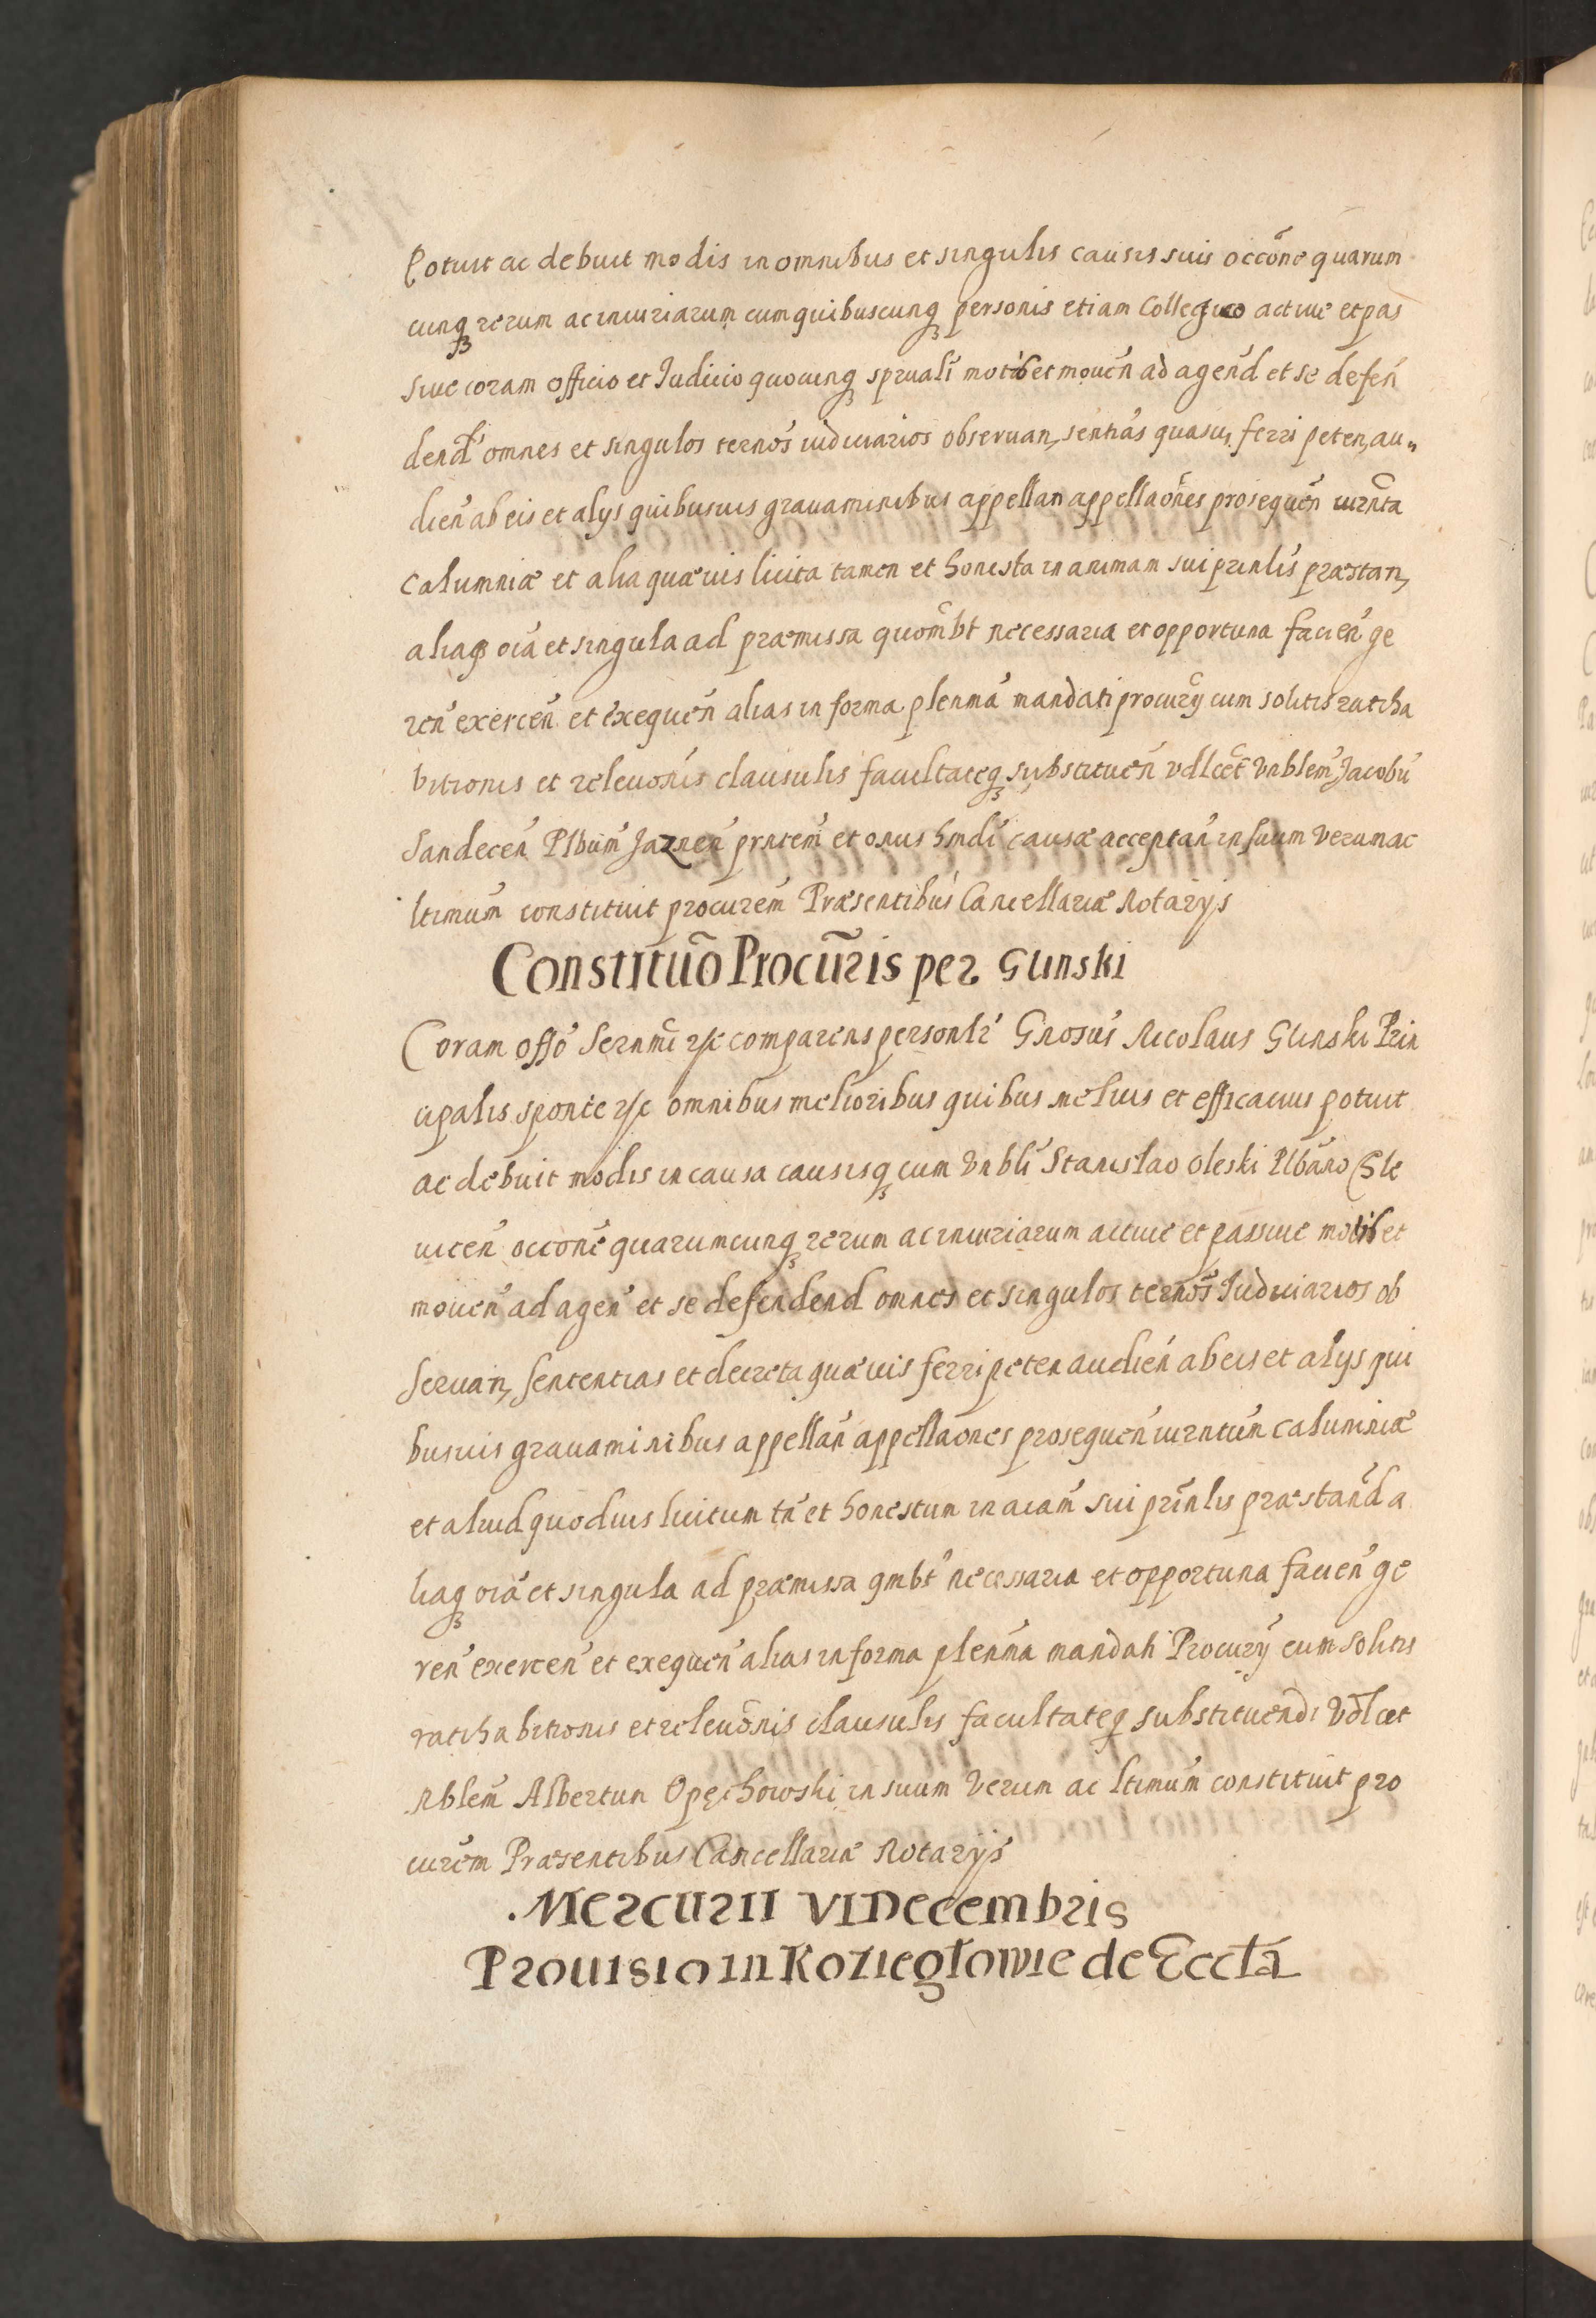 Potuit ac debuit modis in omnibus et singulis causis suis occõne quarum
cunq₃ rerum ac iniuriarum cum quibuscunq₃ personis etiam Collegico actiue et pas
siue coram officio et Iudicio quocunq₃ sprũali motis et mouen̄ ad agend̄ et se defen̄
dend̄ omnes et singulos termōs iudiciarios obseruan, sentiās quasuis ferri peten, au„
dien̄ ab eis et alys quibusuis grauaminibus appellan appellaōnes prosequen̄ iurnta
Calumniæ et alia quæuis licita tamen et honesta in animam sui prinlis præstan,
aliaq₃ oia et singula ad præmissa quom̄bt necessaria et opportuna facien̄ ge
ren̄ exercen̄ et exequen̄ alias in forma plenma mandati procurij cum solitis ratiha
bitionis et releuonis clausulis facultateq₃ substituen̄ vdlcet Vnblem Jacobū
Sandecen̄ Plbum Jaznen̄ prntem̄ et onus hmdi causæ acceptan̄ in suum verum ac
ltimum̄ constituit procurem̄ Præsentibus Cancellariæ Notarijs
Constituõ Procũris per Glinski
Coram offo Sernmi &c comparens personlr Gnosus Nicolaus Glinski Prin
cipalis sponte &c omnibus melioribus quibus melius et efficacius potuit
ac debuit modis in causa causisq₃ cum Vnbli Stanislao Oleski Plbano Gle
uicen̄ occone quarumcunq₃ rerum ac iniuriarum actiue et passiue motis et
mouen̄ ad agen̄ et se defendend omnes et singulos termōs Iudiciarios ob
seruan, sententias et decreta quæuis ferri peten audien̄ ab eis et alijs qui
busuis grauaminibus appellan̄ appellaones prosequen̄ iurntum Calumniæ
et aliud quoduis licitum tn̄ et honestum in aiam̄ sui prinlis præstand a
liaq₃ oia et singula ad præmissa qmbt necessaria et opportuna facien̄ ge
ren̄ exercen̄ et exequen̄ alias in forma plenma mandati Procurij cum solitis
ratihabitionis et releuonis clausulis facultateq₃ substituendi Vdlcet
Nblem̄ Albertun Opęchowski in suum verum ac ltimum̄ constituit pro
curem Præsentibus Cancellariæ Notarijs
Mercurii VI Decembris
Prouisio in Koziegłowie de Eccła